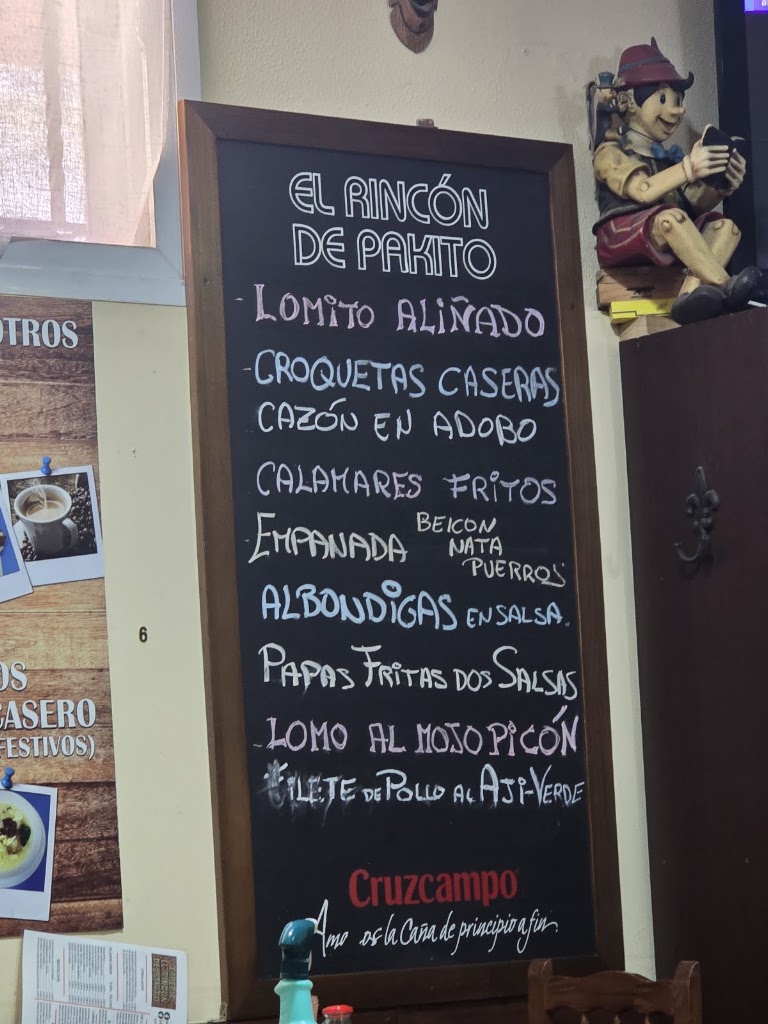 EL RINCÓN
DE PAKITO
- LOMITO ALIÑADO
- CROQUETAS CASERAS
CAZÓN EN ADOBO
CALAMARES FRITOS
- EMPANADA BEICON
NATA
PUERROS
ALBONDIGAS EN SALSA.
PAPAS FRITAS DOS SALSAS
- LOMO AL MOJO PICÓN
FILETE DE POLLO AL AJI-VERDE
Cruzcampo
Amo la Caña de principio a fin
OTROS
6
OS
CASERO
FESTIVOS)